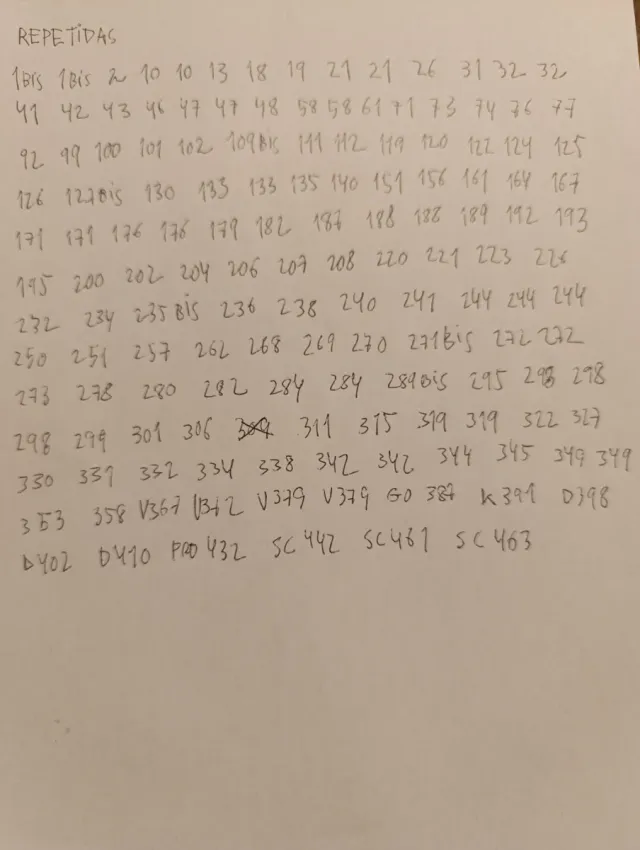 REPETIDAS
1Bis 1Bis 2 10 10 13 18 19 21 21 26 31 32 32
41 42 43 46 47 47 48 58 58 61 71 73 74 76 77
92 99 100 101 102 109Bis 111 112 119 120 122 124 125
126 127Bis 130 133 133 135 140 151 156 161 164 167
171 171 176 176 179 182 187 188 188 189 192 193
195 200 202 204 206 207 208 220 221 223 226
232 234 235Bis 236 238 240 241 244 244 244
250 251 257 262 268 269 270 271Bis 272 272
273 278 280 282 284 284 289Bis 295 298 298
298 299 301 306 311 315 319 319 322 327
330 331 332 334 338 342 342 344 345 349 349
353 358 V367 V379 V379 GO 387 K391 D398
D402 D410 PRO 432 SC 442 SC 461 SC 463